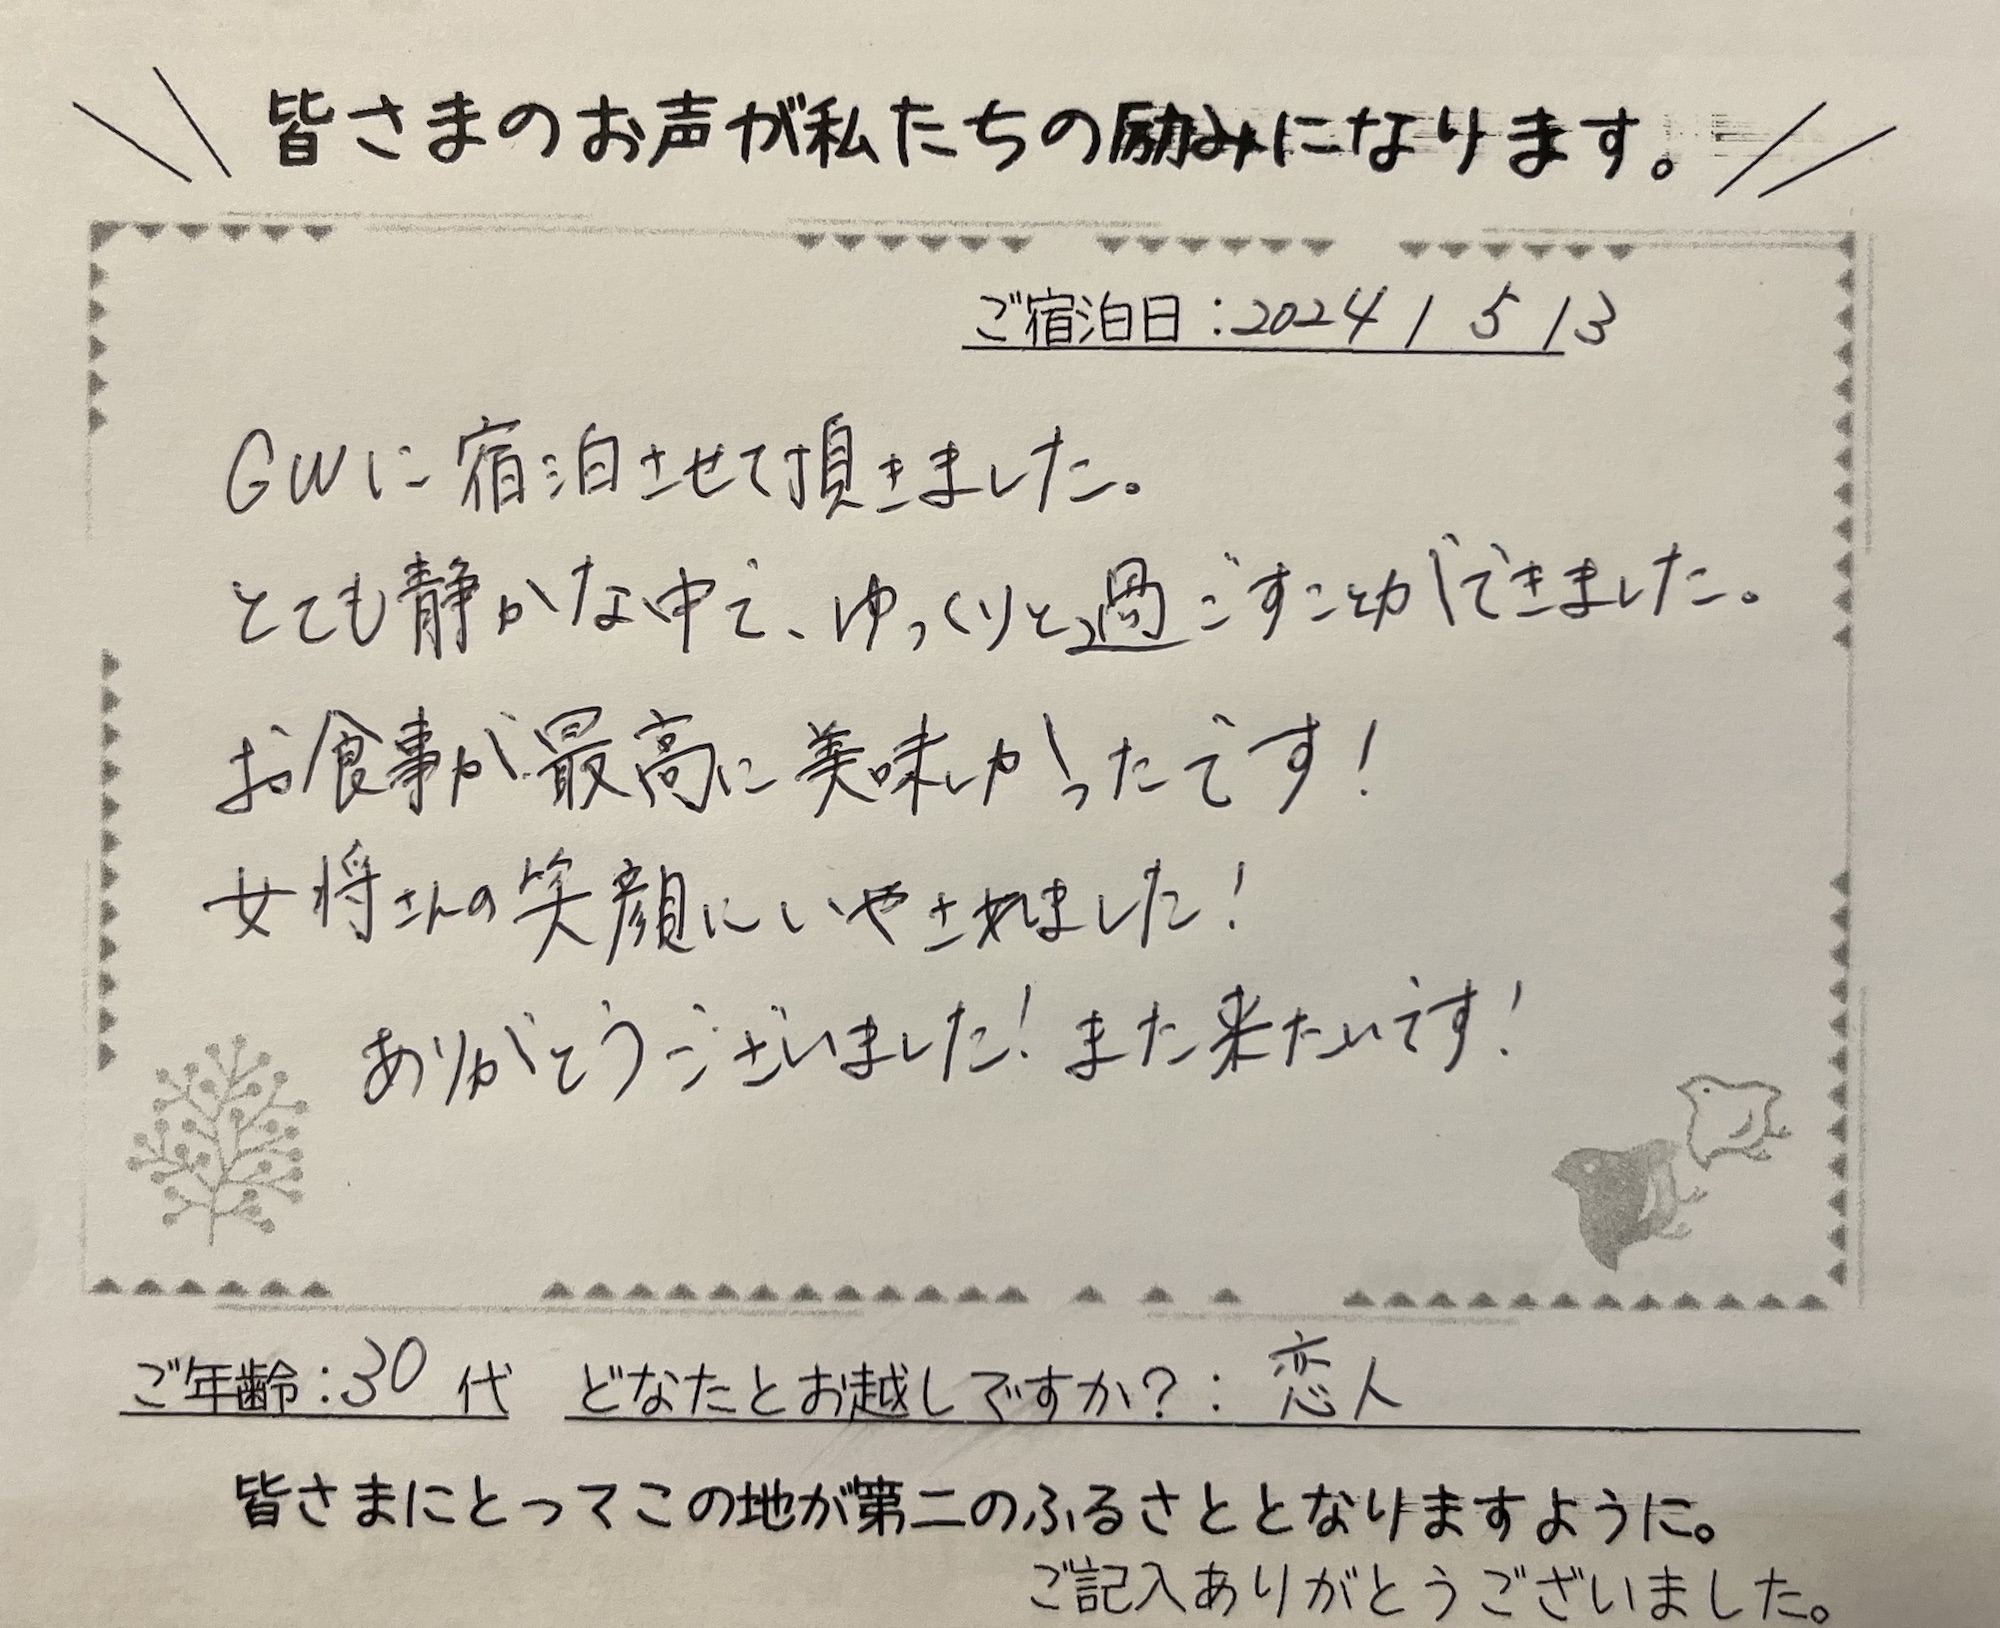 皆さまのお声が私たちの励みになります。
ご宿泊日：2024/5/3
GWに宿泊させて頂きました。
とても静かな中で、ゆっくりと過ごすことができました。
お食事が最高に美味しかったです！
女将さんの笑顔にいやされました！
ありがとうございました！また来たいです！
ご年齢：30代 どなたとお越しですか？：恋人
皆さまにとってこの地が第二のふるさととなりますように。
ご記入ありがとうございました。